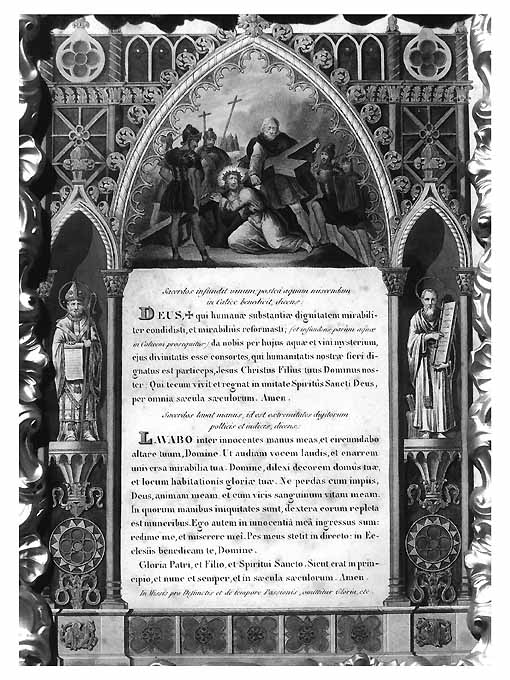 Sacerdos infundit vinum postea aquam miscendam
in Calice benedicit, dicens.
DEUS,✠ qui humanæ substantiæ dignitatem mirabili-
ter condidisti, et mirabilius reformasti; (et infundens parum aquæ
in Calicem prosequitur) da nobis per hujus aquæ et vini mysterium,
ejus divinitatis esse consortes, qui humanitatis nostræ fieri di-
gnatus est particeps, Jesus Christus Filius tuus Dominus nos-
ter: Qui tecum vivit et regnat in unitate Spiritûs Sancti Deus,
per omnia sæcula sæculorum. Amen.
Sacerdos lavat manus, id est extremitates digitorum
pollicis et indicis, dicens.
LAVABO inter innocentes manus meas, et circumdabo
altare tuum, Domine. Ut audiam vocem laudis, et enarrem
universa mirabilia tua. Domine, dilexi decorem domûs tuæ,
et locum habitationis gloriæ tuæ. Ne perdas cum impiis,
Deus, animam meam, et cum viris sanguinum vitam meam.
In quorum manibus iniquitates sunt, dextera eorum repleta
est muneribus. Ego autem in innocentiâ meâ ingressus sum:
redime me, et miserere mei. Pes meus stetit in directo: in Ec-
clesiis benedicam te, Domine.
Gloria Patri, et Filio, et Spiritui Sancto. Sicut erat in prin-
cipio, et nunc et semper, et in sæcula sæculorum. Amen.
In Missis pro Defunctis et de tempore Passionis, omittitur Gloria, etc.